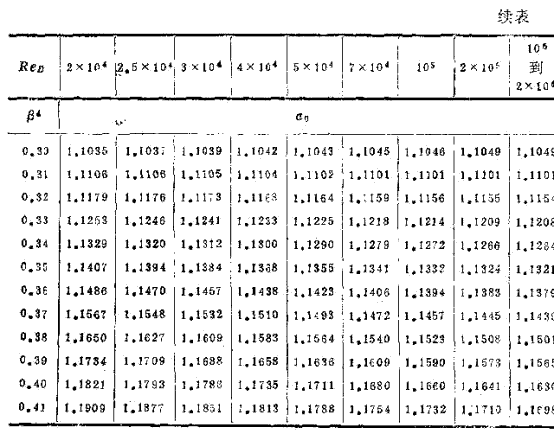 续表
Re_D 2×10⁴ 2.5×10⁴ 3×10⁴ 4×10⁴ 5×10⁴ 7×10⁴ 10⁵ 2×10⁵ 10⁶到2×10⁶
β⁴ α₀
0.30 1.1035 1.1037 1.1039 1.1042 1.1043 1.1045 1.1046 1.1049 1.1049
0.31 1.1106 1.1106 1.1105 1.1104 1.1102 1.1101 1.1101 1.1101 1.1101
0.32 1.1179 1.1176 1.1173 1.1164 1.1159 1.1156 1.1155 1.1154
0.33 1.1253 1.1246 1.1241 1.1233 1.1225 1.1218 1.1214 1.1209 1.1208
0.34 1.1329 1.1320 1.1312 1.1300 1.1290 1.1279 1.1272 1.1266 1.1264
0.35 1.1407 1.1394 1.1384 1.1368 1.1355 1.1341 1.1332 1.1324 1.1321
0.36 1.1486 1.1470 1.1457 1.1438 1.1423 1.1406 1.1394 1.1383 1.1379
0.37 1.1567 1.1548 1.1532 1.1510 1.1493 1.1472 1.1457 1.1445 1.1439
0.38 1.1650 1.1627 1.1609 1.1583 1.1564 1.1540 1.1523 1.1508 1.1501
0.39 1.1734 1.1709 1.1688 1.1658 1.1636 1.1609 1.1590 1.1573 1.1565
0.40 1.1821 1.1793 1.1735 1.1711 1.1680 1.1660 1.1641 1.1630
0.41 1.1909 1.1877 1.1851 1.1813 1.1788 1.1754 1.1732 1.1710 1.1698